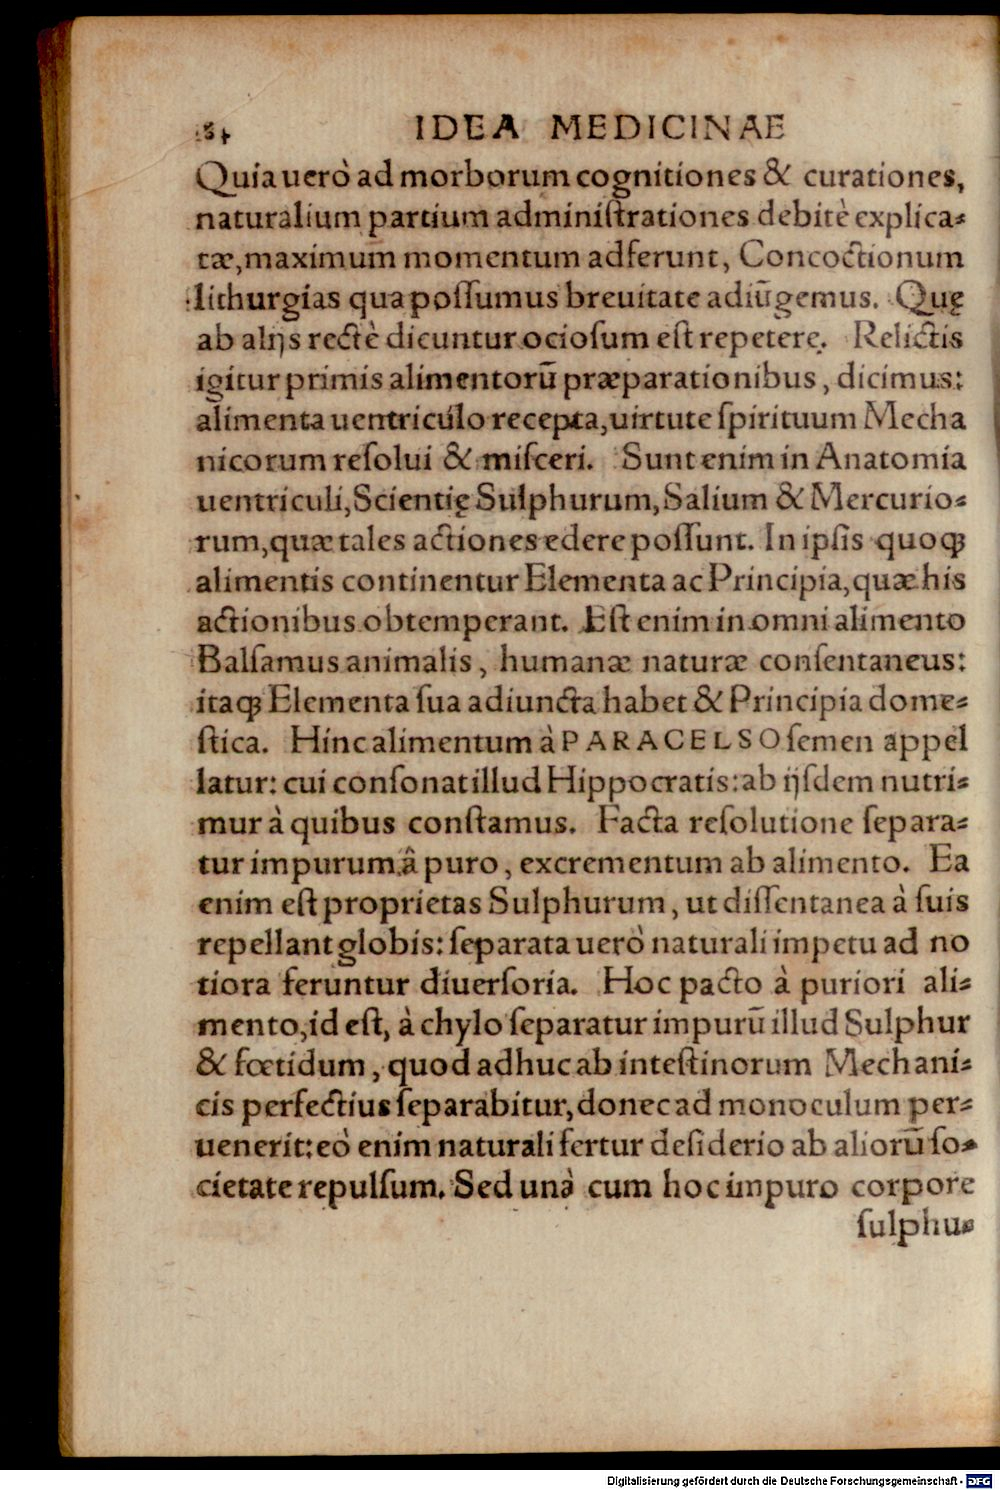 84 IDEA MEDICINAE
Quia uerò ad morborum cognitiones & curationes,
naturalium partium adminiſtrationes debitè explica⸗
tæ, maximum momentum adferunt, Concoctionum
lithurgias qua poſſumus breuitate adiũgemus. Quę
ab alijs rectè dicuntur ocioſum eſt repetere. Relictis
igitur primis alimentorũ præparationibus, dicimus:
alimenta uentriculo recepta, uirtute ſpirituum Mecha
nicorum reſolui & miſceri. Sunt enim in Anatomia
uentriculi, Scientię Sulphurum, Salium & Mercurio⸗
rum, quæ tales actiones edere poſſunt. In ipſis quoqꝫ
alimentis continentur Elementa ac Principia, quæ his
actionibus obtemperant. Eſt enim in omni alimento
Balſamus animalis, humanæ naturæ conſentaneus:
itaqꝫ Elementa ſua adiuncta habet & Principia dome⸗
ſtica. Hinc alimentum à PARACELSO ſemen appel
latur: cui conſonat illud Hippocratis: ab ijſdem nutri⸗
mur à quibus conſtamus. Facta reſolutione ſepara⸗
tur impurum â puro, excrementum ab alimento. Ea
enim eſt proprietas Sulphurum, ut diſſentanea à ſuis
repellant globis: ſeparata uerò naturali impetu ad no
tiora feruntur diuerſoria. Hoc pacto à puriori ali⸗
mento, id eſt, à chylo ſeparatur impurũ illud Sulphur
& fœtidum, quod adhuc ab inteſtinorum Mechani⸗
cis perfectius ſeparabitur, donec ad monoculum per⸗
uenerit: eò enim naturali fertur deſiderio ab aliorũ ſo⸗
cietate repulſum. Sed unà cum hoc impuro corpore
ſulphu⸗
Digitalisierung gefördert durch die Deutsche Forschungsgemeinschaft - DFG